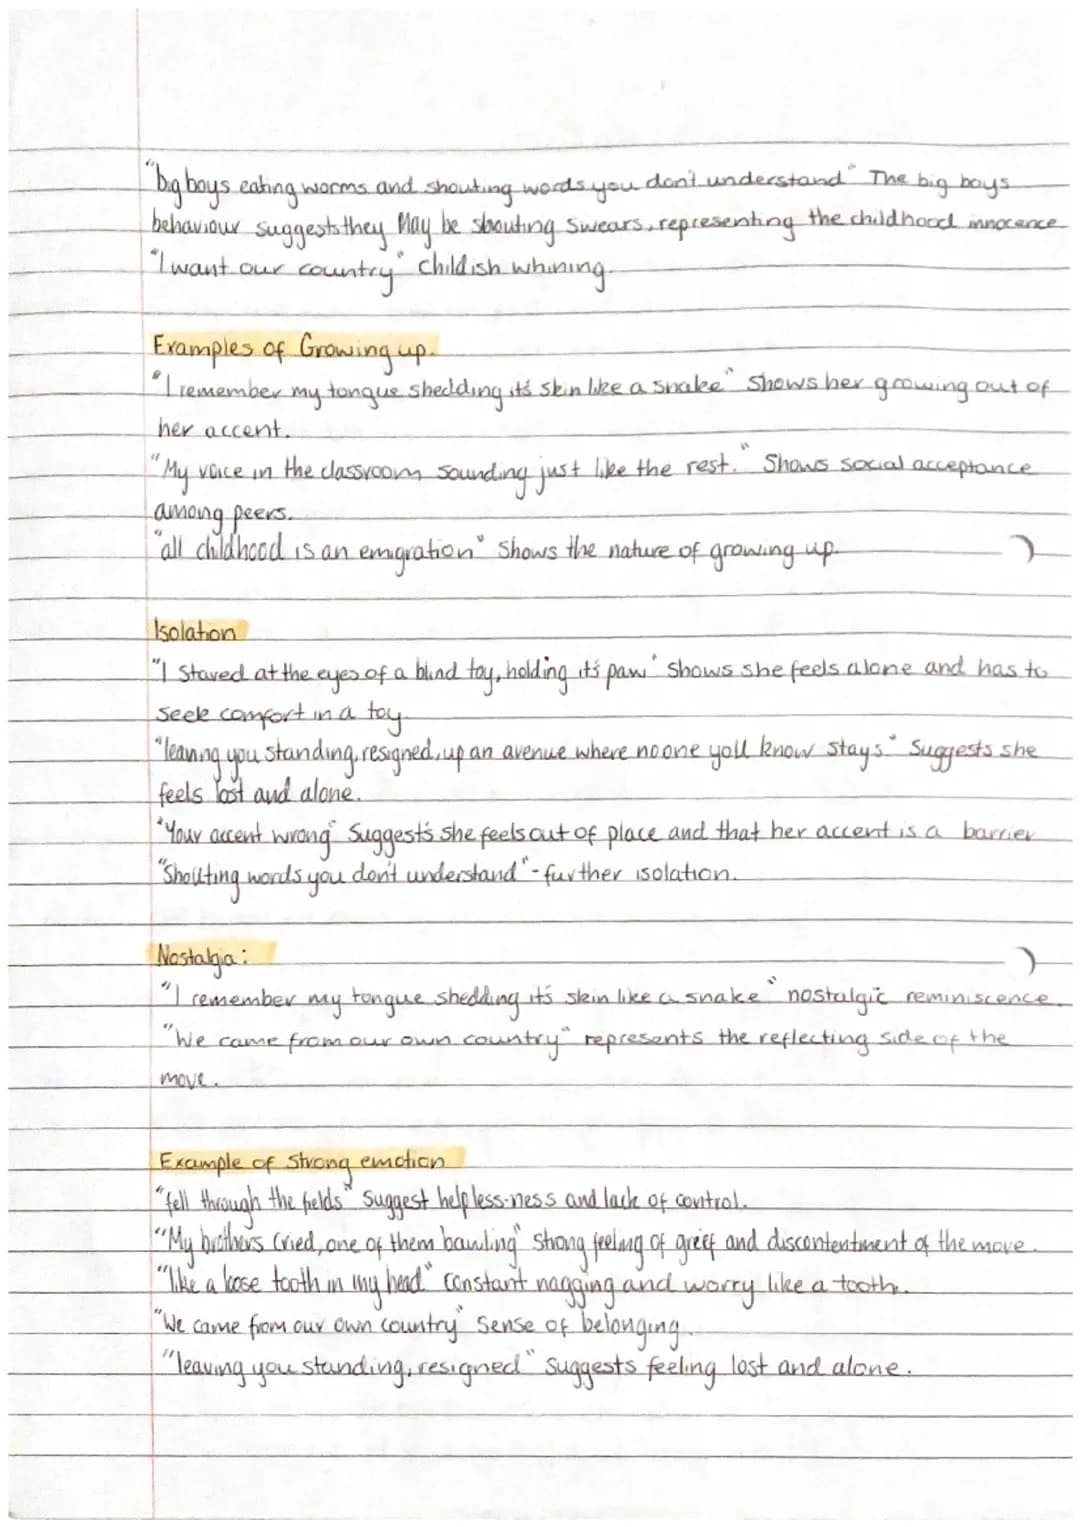 "big boys eating worms and shouting words you don't understand" The big boys
behaviour suggests they May be shouting swears, representing the childhood innocence
"I want our country" childish whining.
Examples of Growing up.
"I remember my tongue shedding it's skin like a snake" Shows her growing out of
her accent.
"My voice in the classroom sounding just like the rest." Shows social acceptance
among peers.
"all childhood is an emigration" Shows the nature of growing up.
Isolation
"I Stared at the eyes of a blind toy, holding it's paw" Shows she feels alone and has to
seek comfort in a toy.
"leaving you standing, resigned, up an avenue where no one you'll know stays." Suggests she
feels lost and alone.
"Your accent wrong" Suggests she feels out of place and that her accent is a barrier
"Shouting words you don't understand" - further isolation.
Nostalgia:
"I remember my tongue shedding it's skin like a snake" nostalgic reminiscence.
"We came from our own country" represents the reflecting side of the
move.
Example of Strong emotion
"fell through the fields" suggest helpless-ness and lack of control.
"My brothers cried, one of them bawling" Strong feeling of greif and discontentment of the move.
"like a loose tooth in my head" Constant nagging and worry like a tooth.
"We came from our own country" Sense of belonging.
"leaving you standing, resigned" Suggests feeling lost and alone.